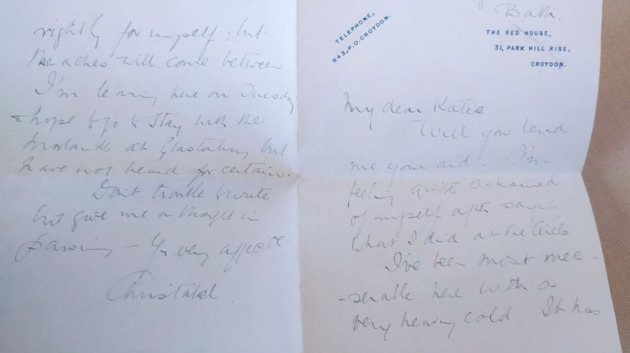 Bath.
TELEPHONE,
643, P.O. CROYDON.
THE RED HOUSE,
31, PARK HILL RISE,
CROYDON.
My dear Katie
Will you lend
me your aid. I'm
feeling quite ashamed
of myself after saying
what I did at the Circle
I've been most mee-
-serable here with a
very heavy cold. It has
rightly for myself: but
the aches will come between
I'm leaving here on Tuesday
& hope to go & stay with the
at Glastonbury but
have not heard for certain.
Dont trouble to write
but give me a thought in
passing - Yr very affecte
Christabel.